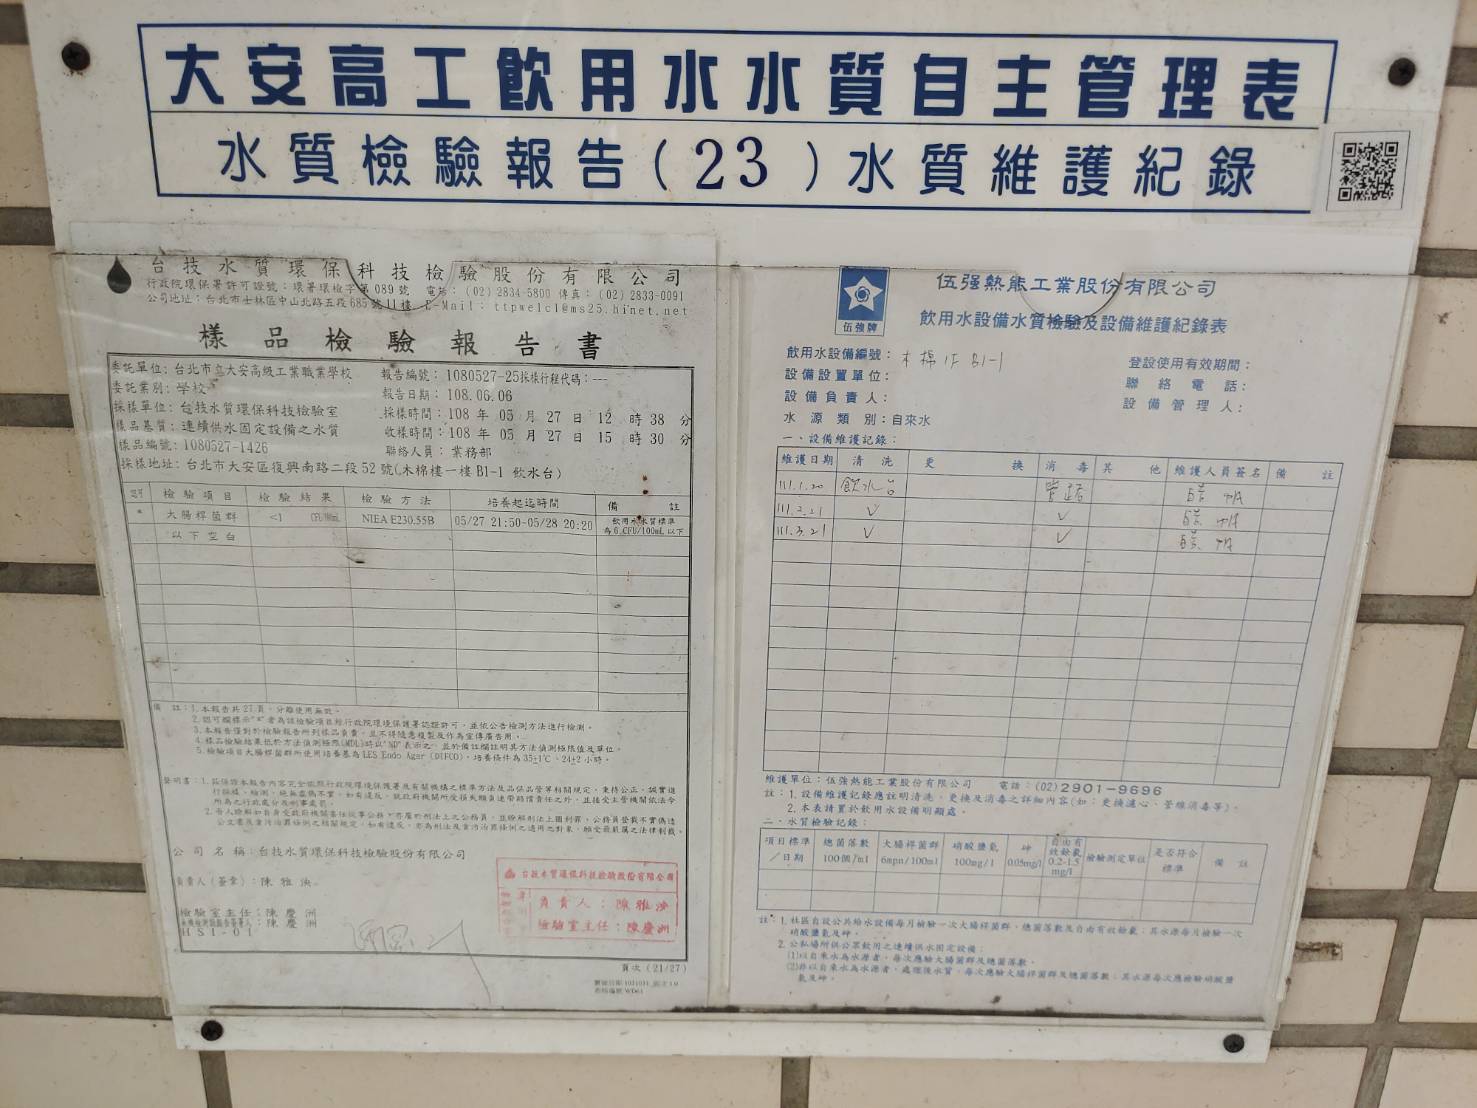 大安高工飲用水水質自主管理表
水質檢驗報告(23)水質維護紀錄
台技水質環保科技檢驗股份有限公司
行政院環保署許可證號:環署環檢字第089號 電話:(02)2834-5800 傳真:(02)2833-0091
公司地址:台北市士林區中山北路五段685號11樓 E-Mail: ttpwelcl@ms25.hinet.net
樣品檢驗報告書
委託單位:台北市立大安高級工業職業學校
報告編號:1080527-25採樣行程代碼:---
委託業別:學校
報告日期:108.06.06
採樣單位:台技水質環保科技檢驗室
採樣時間:108 年 05 月 27 日 12 時 38 分
樣品基質:連續供水固定設備之水質
收樣時間:108 年 05 月 27 日 15 時 30 分
樣品編號:1080527-1426
聯絡人員:業務部
採樣地址:台北市大安區復興南路二段52號(木棉樓一樓B1-1 飲水台)
認可 檢驗項目 檢驗結果 檢驗方法 培養起迄時間 備註
* 大腸桿菌群 <1 CFU/100mL NIEA E230.55B 05/27 21:50-05/28 20:20 飲用水水質標準
為6 CFU/100mL以下
以下空白
備 註:1.本報告共27頁,分離使用無效。
2.認可欄標示"*"者為該檢驗項目經行政院環境保護署認證許可,並依公告檢測方法進行檢測。
3.本報告僅對於檢驗報告所列樣品負責,且不得隨意複製及作為宣傳廣告用。
4.樣品檢驗結果低於方法偵測極限(MDL)時以"ND"表示之,並於備註欄註明其方法偵測極限值及單位。
5.檢驗項目大腸桿菌群所使用培養基為LES Endo Agar (DIFCO),培養條件為35±1℃、24±2小時。
公司名稱:台技水質環保科技檢驗股份有限公司
負責人(簽章):陳雅泱
檢驗室主任:陳慶洲
HSI-01
台技水質環保科技檢驗股份有限公司
負責人:陳雅泱
檢驗室主任:陳慶洲
頁次(21/27)
伍強牌
伍强熱能工業股份有限公司
飲用水設備水質檢驗及設備維護紀錄表
飲用水設備編號:木棉1F B1-1
登設使用有效期間:
設備設置單位:
聯絡電話:
設備負責人:
設備管理人:
水源類別:自來水
一、設備維護記錄:
維護日期 清洗 更換 消毒 其他 維護人員簽名 備註
111.1.20 飲水台 管路
111.2.21 ✓ ✓
111.3.21 ✓ ✓
維護單位:伍強熱能工業股份有限公司 電話:(02)2901-9696
註:1.設備維護記錄應註明清洗、更換及消毒之詳細內容(如:更換濾心、管線消毒等)。
2.本表請置於飲用水設備明顯處。
二、水質檢驗記錄:
項目標準/日期 總菌落數100個/ml 大腸桿菌群6mpn/100ml 硝酸鹽氮100mg/l 砷0.05mg/l 自由有效餘氯0.2-1.5mg/l 檢驗測定單位 是否符合標準 備註
註:1.社區自設公共給水設備每月檢驗一次大腸桿菌群、總菌落數及自由有效餘氯;其水源每月檢驗一次
硝酸鹽氮及砷。
2.公私場所供公眾飲用之連續供水固定設備:
(1)以自來水為水源者,每次應驗大腸桿菌群及總菌落數。
(2)非以自來水為水源者,處理後水質,每次應驗大腸桿菌群及總菌落數;其水源每次應檢驗硝酸鹽
氮及砷。